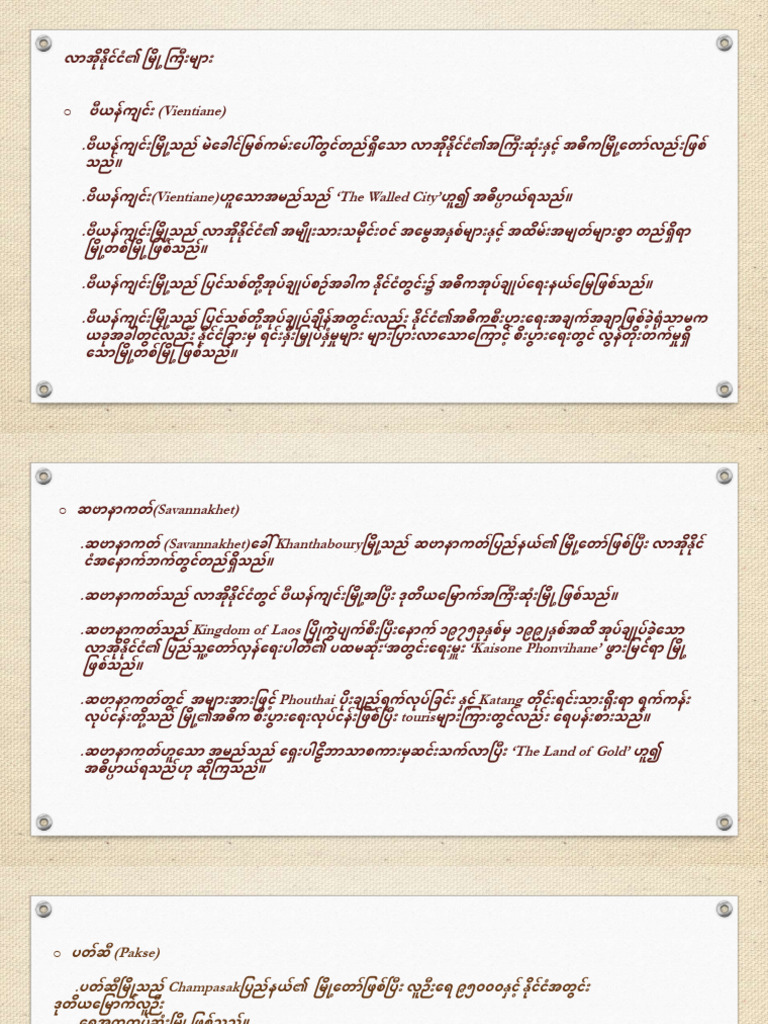 လာအိုနိုင်ငံ၏ မြို့ကြီးများ
○ ဗီယန်ကျင်း (Vientiane)
.ဗီယန်ကျင်းမြို့သည် မဲခေါင်မြစ်ကမ်းပေါ်တွင်တည်ရှိသော လာအိုနိုင်ငံ၏အကြီးဆုံးနှင့် အဓိကမြို့တော်လည်းဖြစ်
သည်။
.ဗီယန်ကျင်း(Vientiane)ဟူသောအမည်သည် ‘The Walled City’ဟူ၍ အဓိပ္ပာယ်ရသည်။
.ဗီယန်ကျင်းမြို့သည် လာအိုနိုင်ငံ၏ အမျိုးသားသမိုင်းဝင် အမွေအနှစ်များနှင့် အထိမ်းအမှတ်များစွာ တည်ရှိရာ
မြို့တစ်မြို့ဖြစ်သည်။
.ဗီယန်ကျင်းမြို့သည် ပြင်သစ်တို့အုပ်ချုပ်စဉ်အခါက နိုင်ငံတွင်း၌ အဓိကအုပ်ချုပ်ရေးနယ်မြေဖြစ်သည်။
.ဗီယန်ကျင်းမြို့သည် ပြင်သစ်တို့အုပ်ချုပ်ချိန်အတွင်းလည်း နိုင်ငံ၏အဓိကစီးပွားရေးအချက်အချာဖြစ်ခဲ့ရုံသာမက
ယခုအခါတွင်လည်း နိုင်ငံခြားမှ ရင်းနှီးမြှုပ်နှံမှုများ များပြားလာသောကြောင့် စီးပွားရေးတွင် လွန်တိုးတက်မှုရှိ
သောမြို့တစ်မြို့ဖြစ်သည်။
○ ဆဗာနာကတ်(Savannakhet)
.ဆဗာနာကတ် (Savannakhet)ခေါ် Khanthabouryမြို့သည် ဆဗာနာကတ်ပြည်နယ်၏ မြို့တော်ဖြစ်ပြီး လာအိုနိုင်
ငံအနောက်ဘက်တွင်တည်ရှိသည်။
.ဆဗာနာကတ်သည် လာအိုနိုင်ငံတွင် ဗီယန်ကျင်းမြို့အပြီး ဒုတိယမြောက်အကြီးဆုံးမြို့ဖြစ်သည်။
.ဆဗာနာကတ်သည် Kingdom of Laos ပြိုကွဲပျက်စီးပြီးနောက် ၁၉၇၅ခုနှစ်မှ ၁၉၉၂နှစ်အထိ အုပ်ချုပ်ခဲ့သော
လာအိုနိုင်ငံ၏ ပြည်သူ့တော်လှန်ရေးပါတီ၏ ပထမဆုံးအတွင်းရေးမှူး ‘Kaisone Phonvihane’ ဖွားမြင်ရာ မြို့
ဖြစ်သည်။
.ဆဗာနာကတ်တွင် အများအားဖြင့် Phouthai ပိုးချည်ရက်လုပ်ခြင်း နှင့် Katang တိုင်းရင်းသားရိုးရာ ရက်ကန်း
လုပ်ငန်းတို့သည် မြို့၏အဓိက စီးပွားရေးလုပ်ငန်းဖြစ်ပြီး tourisများကြားတွင်လည်း ရေပန်းစားသည်။
.ဆဗာနာကတ်ဟူသော အမည်သည် ရှေးပါဠိဘာသာစကားမှဆင်းသက်လာပြီး ‘The Land of Gold’ ဟူ၍
အဓိပ္ပာယ်ရသည်ဟု ဆိုကြသည်။
○ ပတ်ဆီ (Pakse)
.ပတ်ဆီမြို့သည် Champasakပြည်နယ်၏ မြို့တော်ဖြစ်ပြီး လူဦးရေ ၉၅၀၀၀နှင့် နိုင်ငံအတွင်း
ဒုတိယမြောက်လူဦး